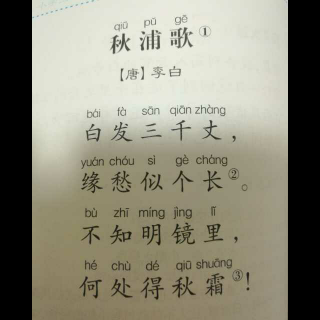 qiū pǔ gē
秋浦歌①
【唐】李白
bái fà sān qiān zhàng
白发三千丈，
yuán chóu sì gè cháng
缘愁似个长②。
bù zhī míng jìng lǐ
不知明镜里，
hé chù dé qiū shuāng
何处得秋霜③！